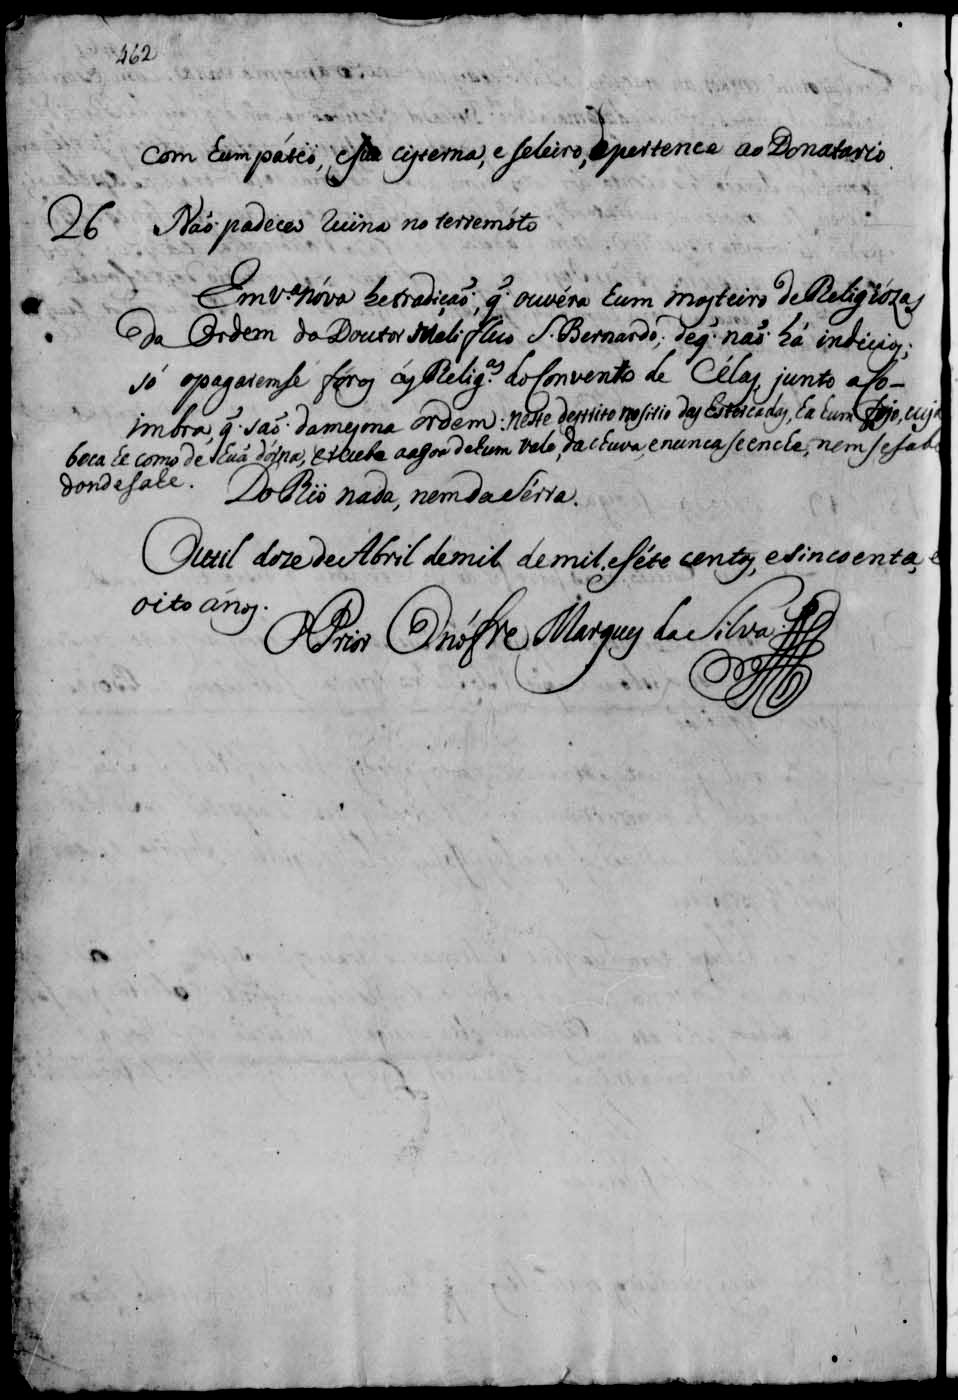 462
com hum páteö, e sua cisterna, e seleiro, e pertence ao Donatario
26 Naõ padeceo ruina no terremóto
Em Vª nóva he tradiçaõ, q̃ ouvéra hum mosteiro de Religiózas
da Ordem do Doutor Melifluo S. Bernardo, de q̃ naõ há indicios;
só o pagaremse foros ás Religᵃˢ do Convento de Célas, junto a Co-
imbra, q̃ saõ da mesma ordem: neste destrito no sitio das Estercadas, ha hum fojo, cuja
boca he como de huã dórna, e recebe a agoa de hum vale, da chuva, e nunca se enche, nem se sabe
donde sahe. Do Riö nada, nem da Sérra.
Ouril doze de Abril de mil de mil, e séte centos, e sincoenta, e
oito ános.
O Prior Onófre Marques da Silva